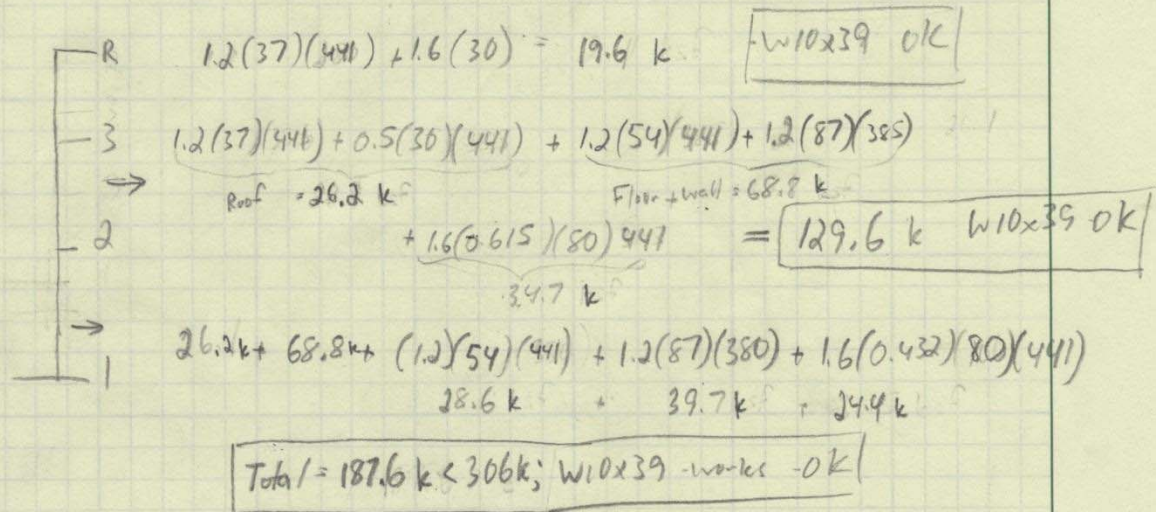 R 1.2(37)(441) + 1.6(30) = 19.6 k -W10x39 OK
3 1.2(37)(441) + 0.5(30)(441) + 1.2(54)(441) + 1.2(87)(385)
→ Roof = 26.2 k Floor + wall = 68.8 k
2 + 1.6(0.615)(80) 441 = 129.6 k W10x39 OK
34.7 k
→ 26.2k + 68.8k + (1.2)(54)(441) + 1.2(87)(380) + 1.6(0.432)(80)(441)
1 28.6 k + 39.7 k + 24.4 k
Total = 187.6 k < 306k; W10x39 -works -OK